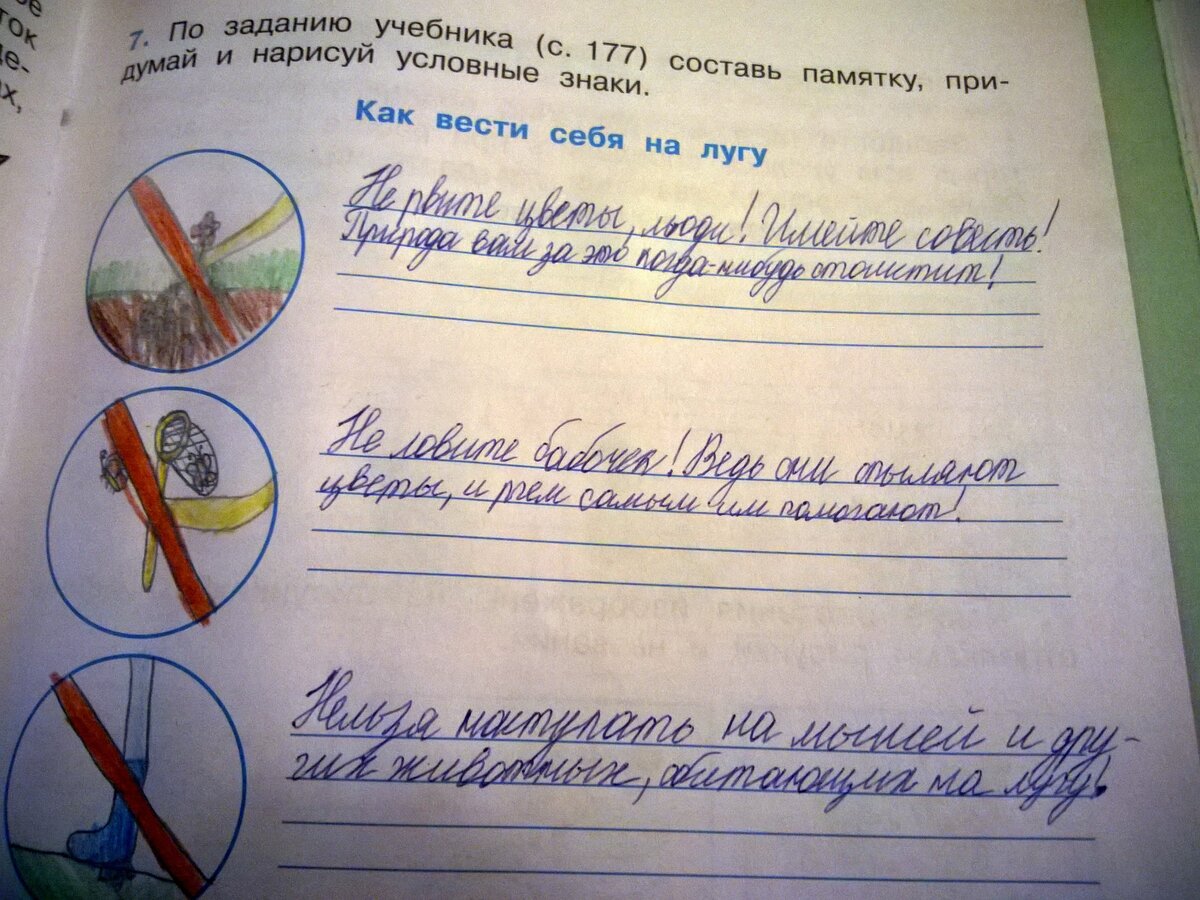 ток
де-
7. По заданию учебника (с. 177) составь памятку, при-
думай и нарисуй условные знаки.
Как вести себя на лугу
Не рвите цветы, люди! Имейте совесть!
Природа вам за это когда-нибудь отомстит!
Не ловите бабочек! Ведь они опыляют
цветы, и тем самым им помогают!
Нельзя наступать на мышей и дру-
гих животных, обитающих на лугу!